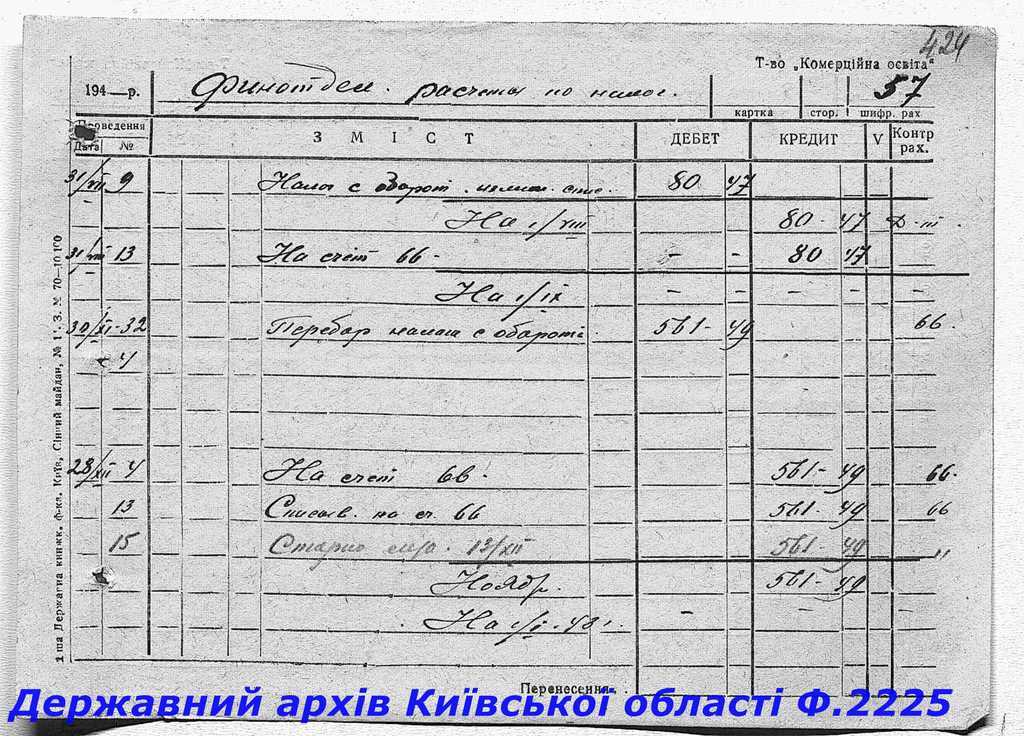 424
Т-во „Комерційна освіта“
194—р. Финотдел. расчеты по налог. 57
картка стор. шифр. рах.
Проведення ЗМІСТ ДЕБЕТ КРЕДИТ V Контр рах.
Дата №
31/VII 9 Налог с оборот. 80 47
На 1/VIII 80-47 Д-III
31/VIII 13 На счёт 66 - - - 80 47
На 1/IX - - - - -
30/XI-32 Перебор налога с оборота. 561-49 66.
4
28/XII 4 На счет 66. 561-49 66.
13 Списыв. на сч. 66 561-49 66
15 13/XII 561-49 "
Ноябр. 561-49
На 1/I-43. - -
Перенесення.
1 ша Державна книжк. ф-ка. Київ, Сінний майдан, № 1 З. № 70—10 100
Державний архів Київської області Ф.2225